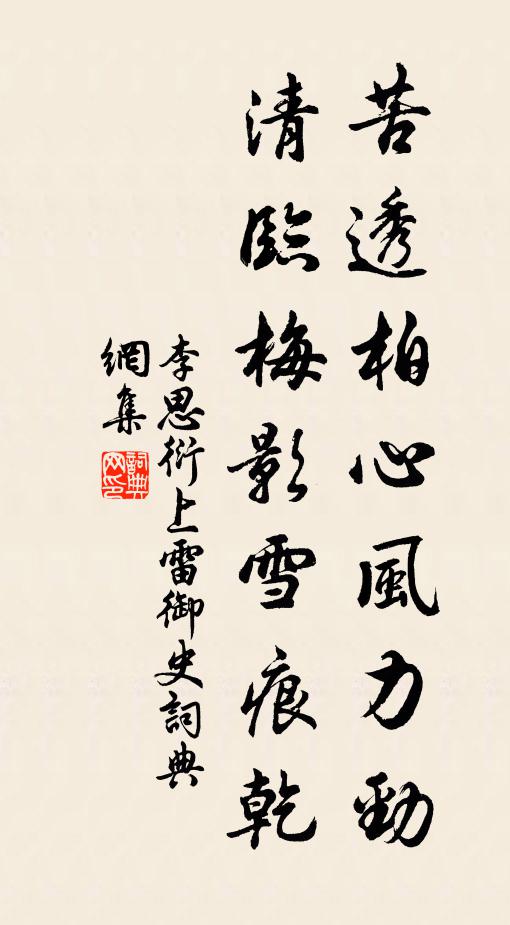 苦透柏心風力勁
清臨梅影雪痕乾
李思衍上雷御史詞典
網集
詞典網印